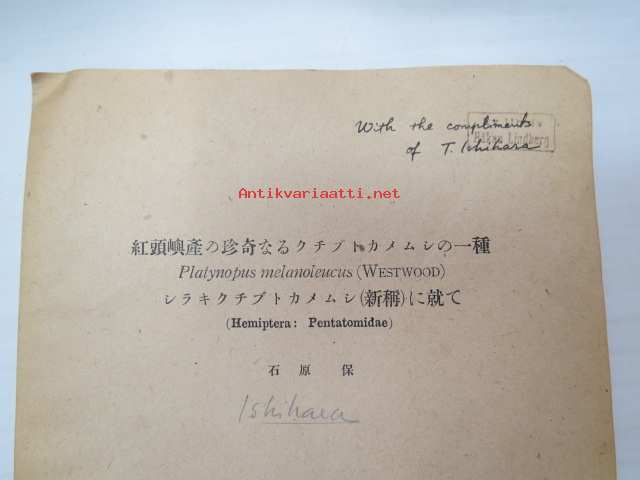 With the compliments
of T. Ishihara
Håkan Lindberg
Antikvariaatti.net
紅頭嶼產の珍奇なるクチブトカメムシの一種
Platynopus melanoleucus (WESTWOOD)
シラキクチブトカメムシ(新稱)に就て
(Hemiptera: Pentatomidae)
石原保
Ishihara